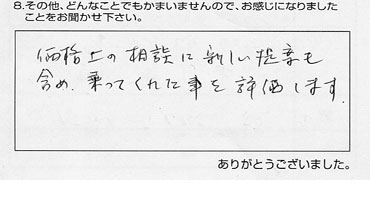 8.その他、どんなことでもかまいませんので、お感じになりました
ことをお聞かせ下さい。
価格上の相談に新しい提案も
含め、乗ってくれた事を評価します。
ありがとうございました。